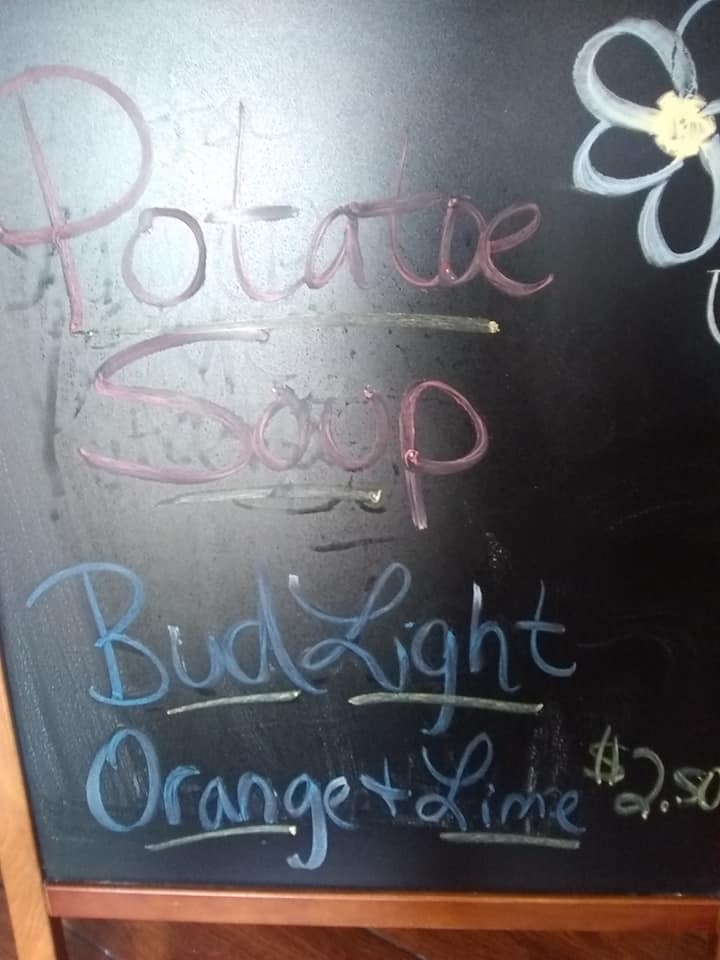 Potatoe
Soup
Bud Light
Orange + Lime $2.50